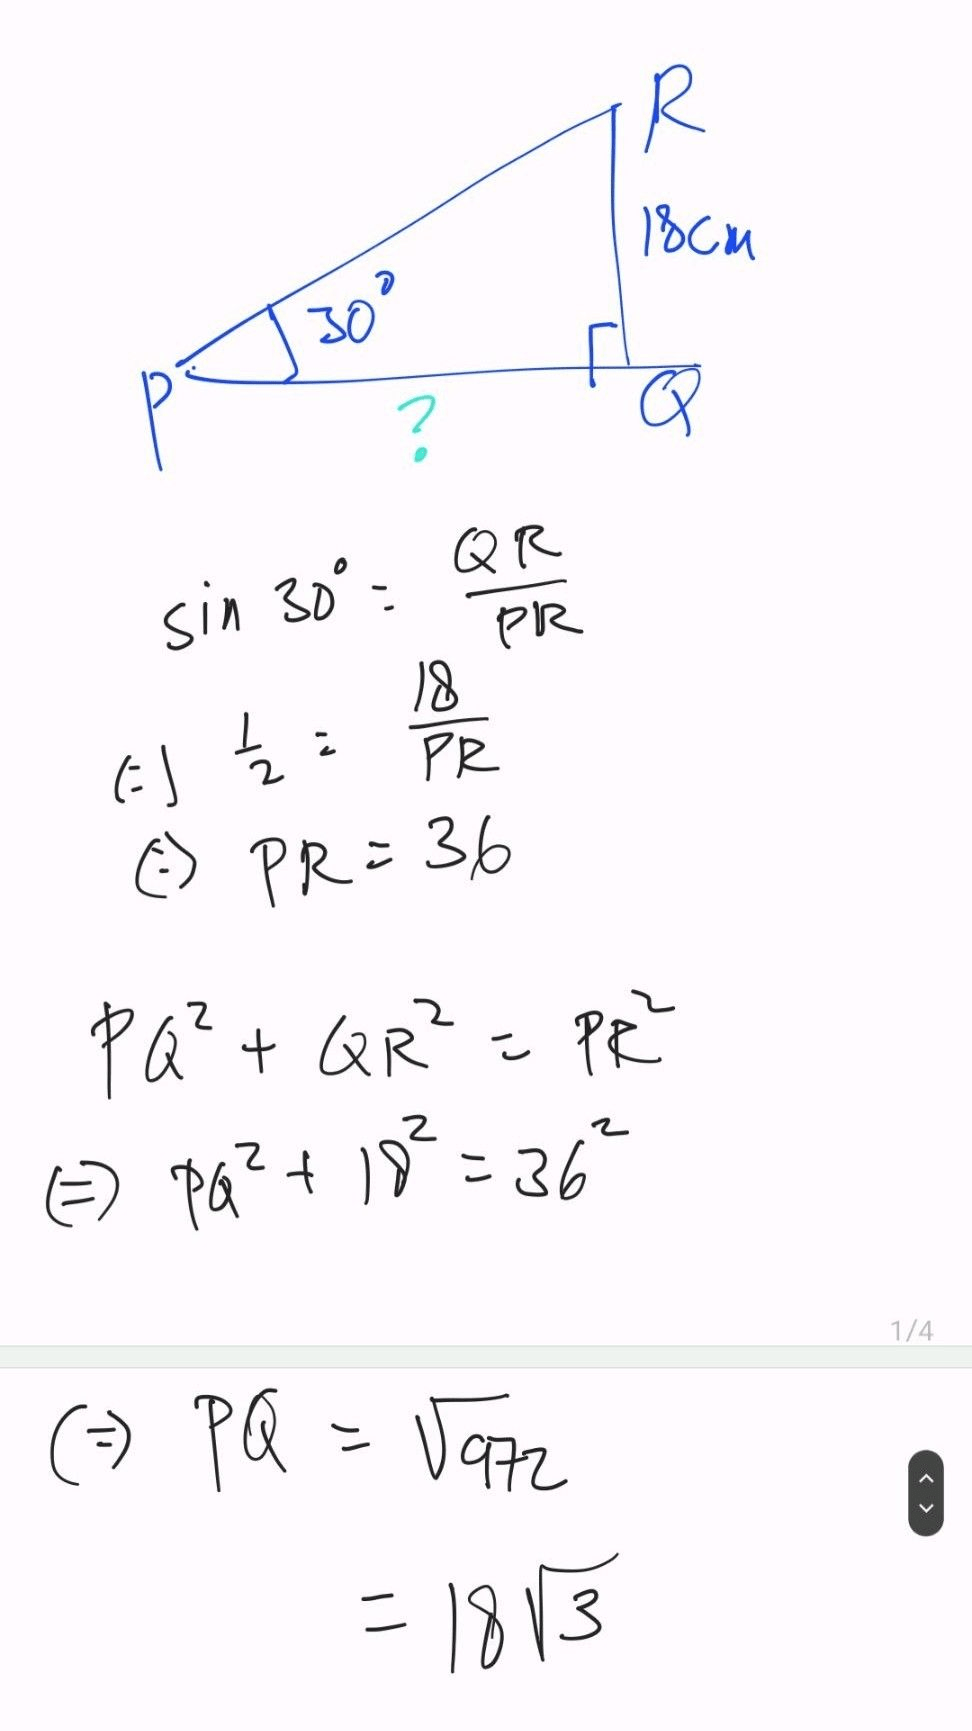 R
18cm
30°
P
Q
?
sin 30° = QR/PR
(=) 1/2 = 18/PR
(=) PR = 36
PQ² + QR² = PR²
(=) PQ² + 18² = 36²
1/4
(=) PQ = √972
= 18√3